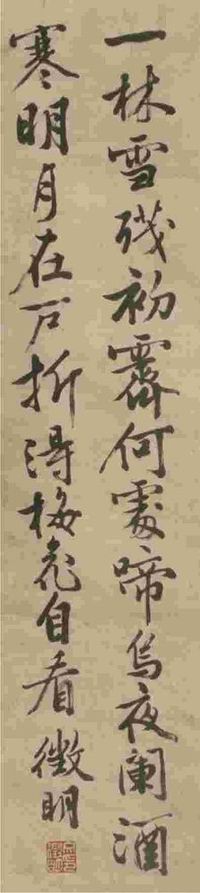 一林雪残初霽何處啼烏夜阑酒
寒明月在户折得梅花自看徵明